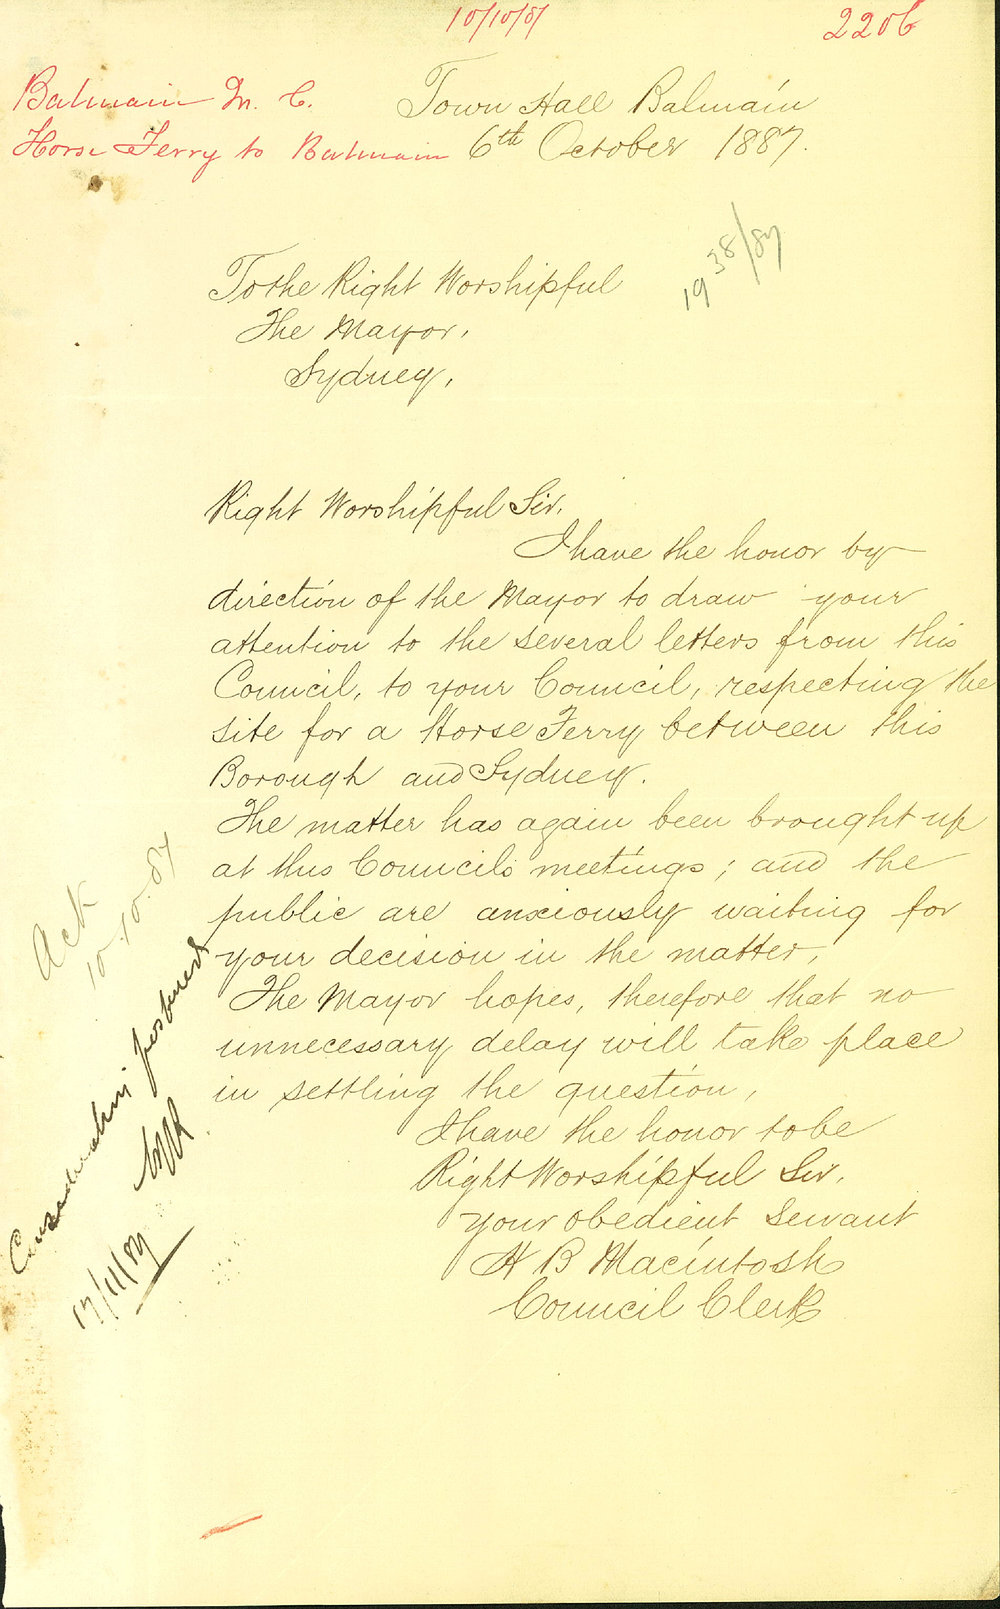 10/10/87
2206
Balmain M. C.
Horse Ferry to Balmain
Town Hall Balmain
6th October 1887.
1938/87
To the Right Worshipful
The Mayor,
Sydney,
Right Worshipful Sir,
I have the honor by
direction of the Mayor to draw your
attention to the several letters from this
Council, to your Council, respecting the
site for a Horse Ferry between this
Borough and Sydney.
The matter has again been brought up
at this Councils meetings; and the
public are anxiously waiting for
your decision in the matter,
The Mayor hopes, therefore that no
unnecessary delay will take place
in settling the question,
I have the honor to be
Right Worshipful Sir,
your obedient servant
H B Macintosh
Council Clerk
Ack
10.10.87
Consideration postponed
17/11/87